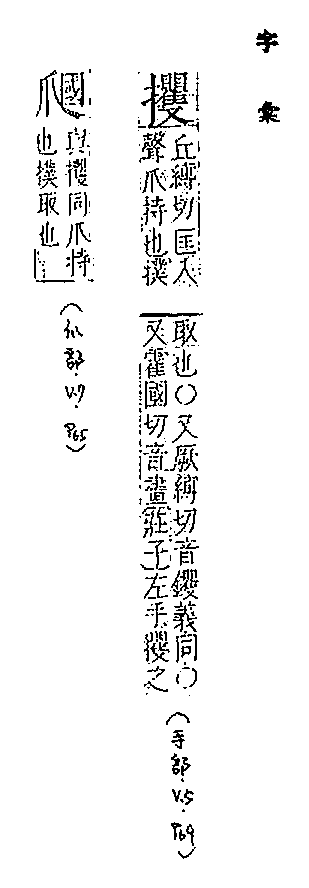 字彙
攫
丘縛切匡入
聲爪持也撲
取也○又厥縛切音钁義同○
又霍國切音畫莊子左手攫之
(手部.V.5.P.69)
與攫同爪持
爪也撲取也
(爪部.V.7.P.65)